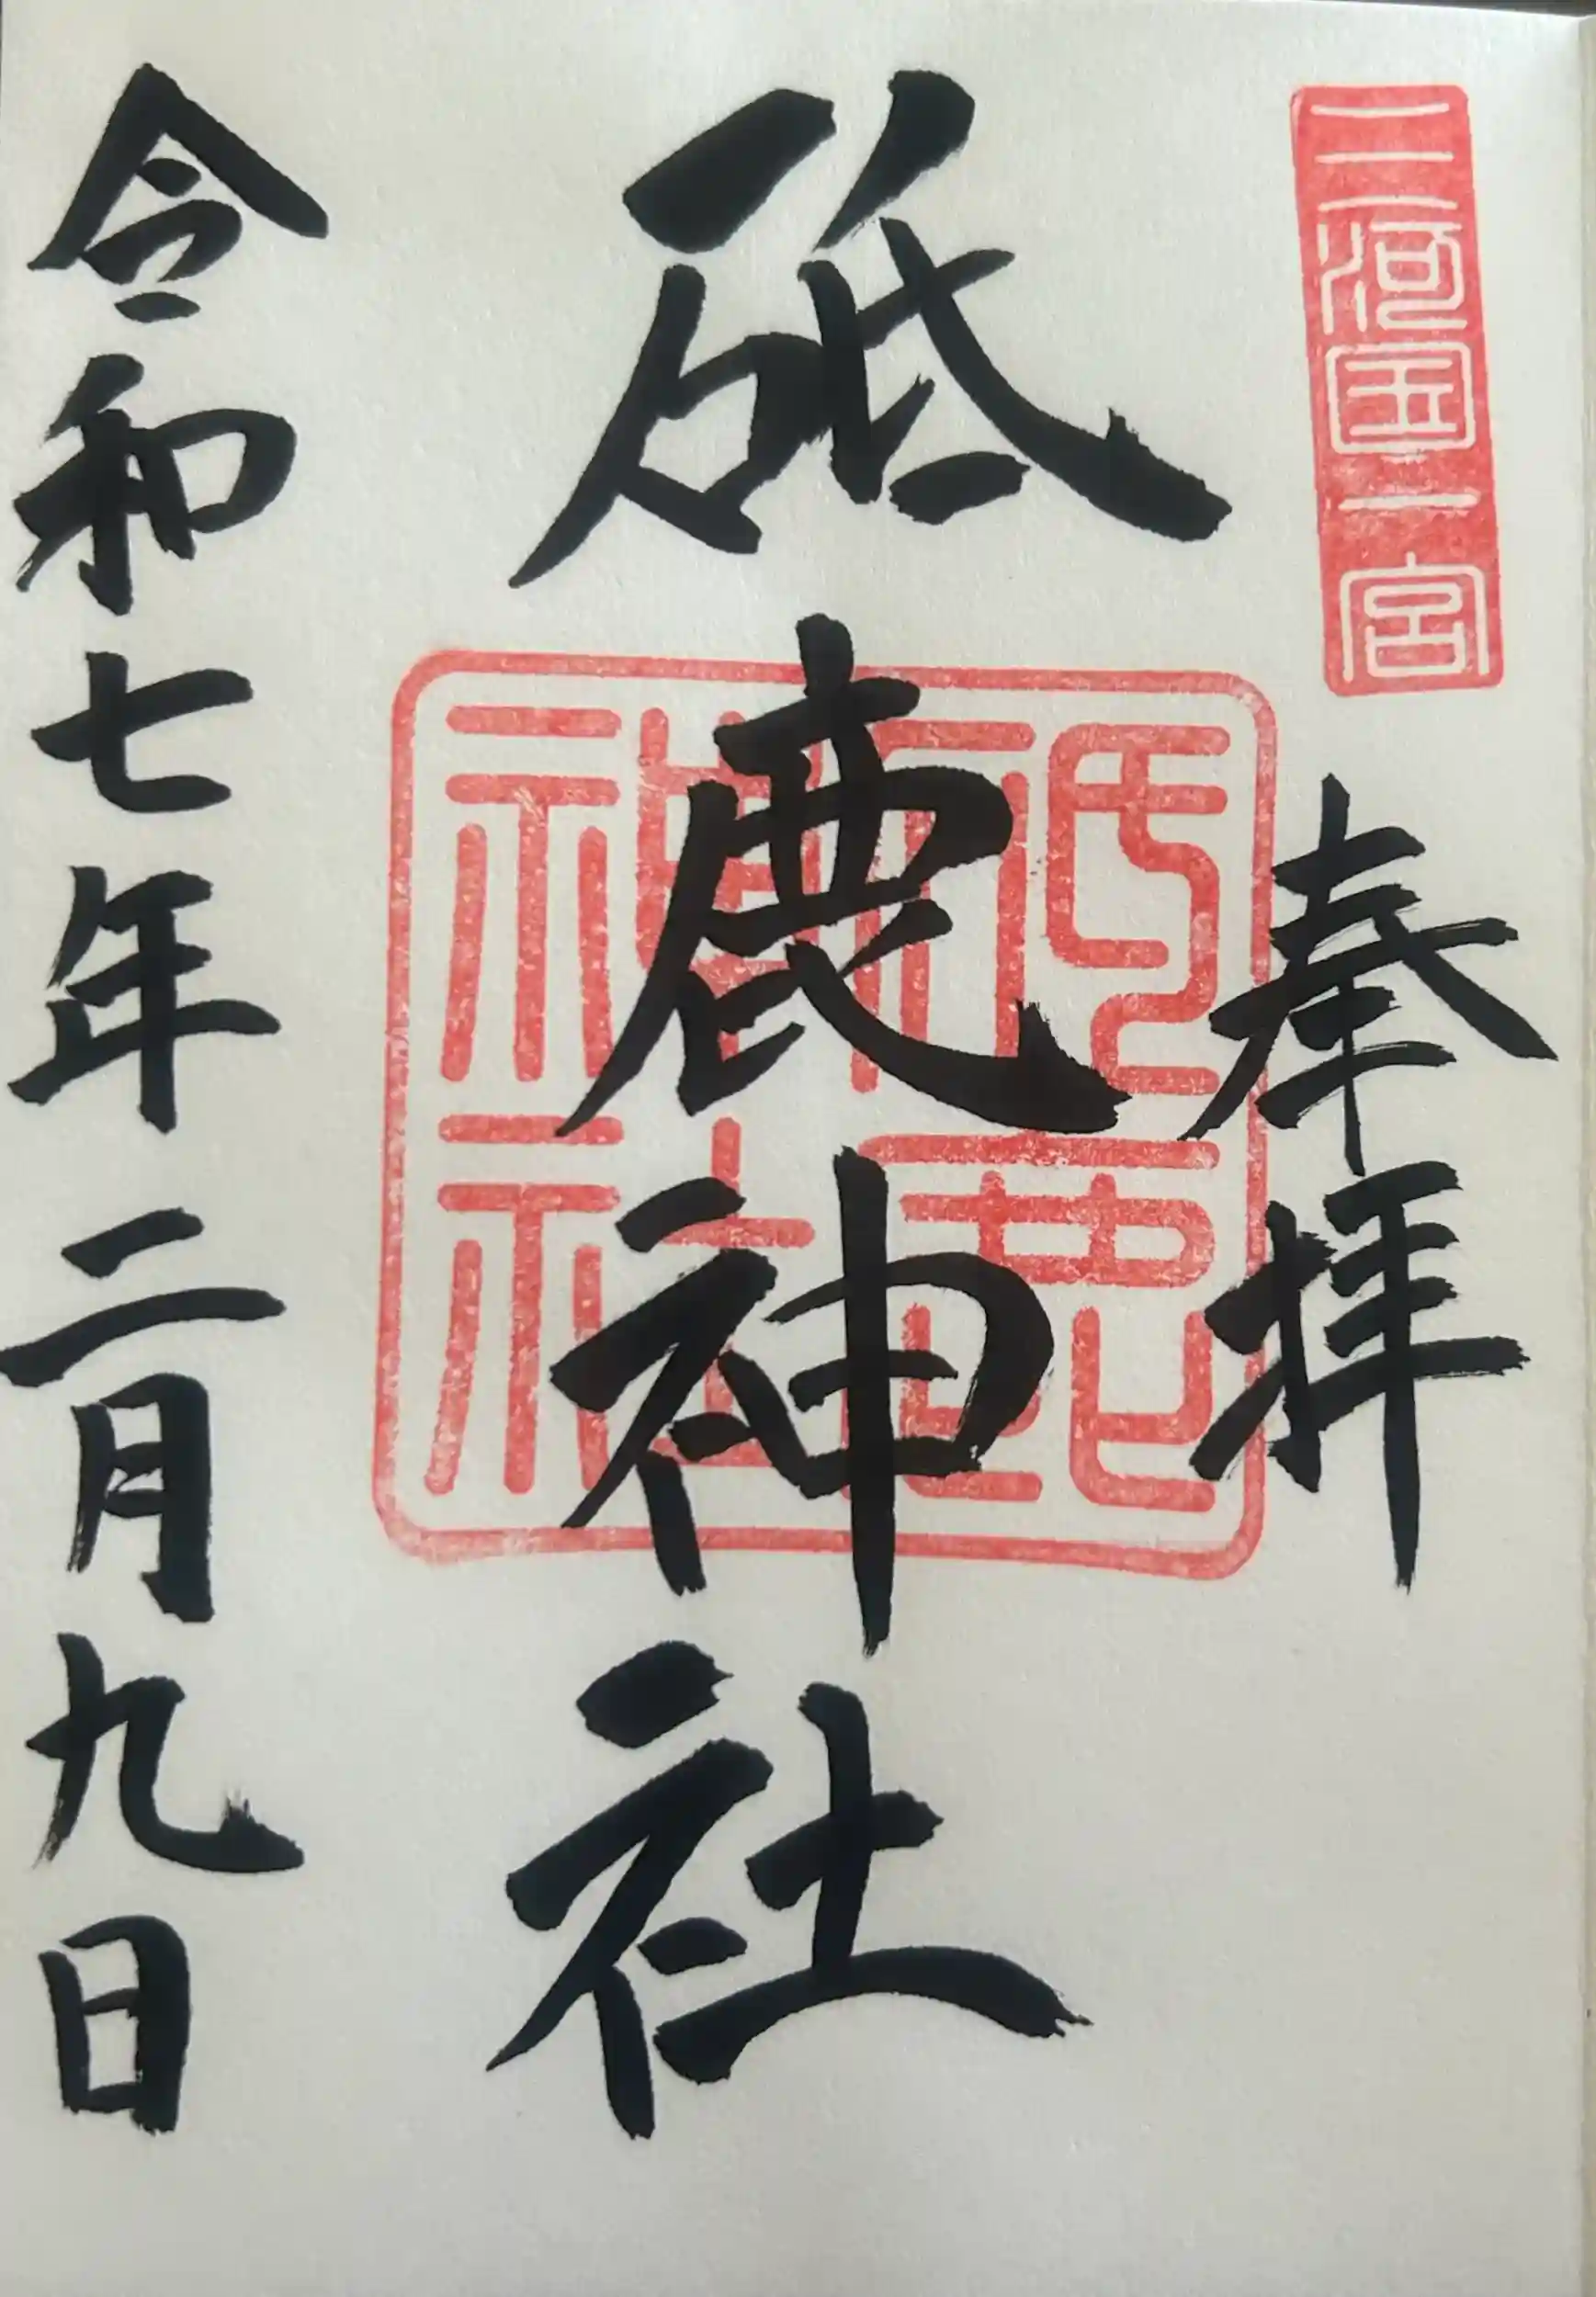 三河国一宮
奉拝
砥鹿神社
砥鹿
神社
令和七年二月九日